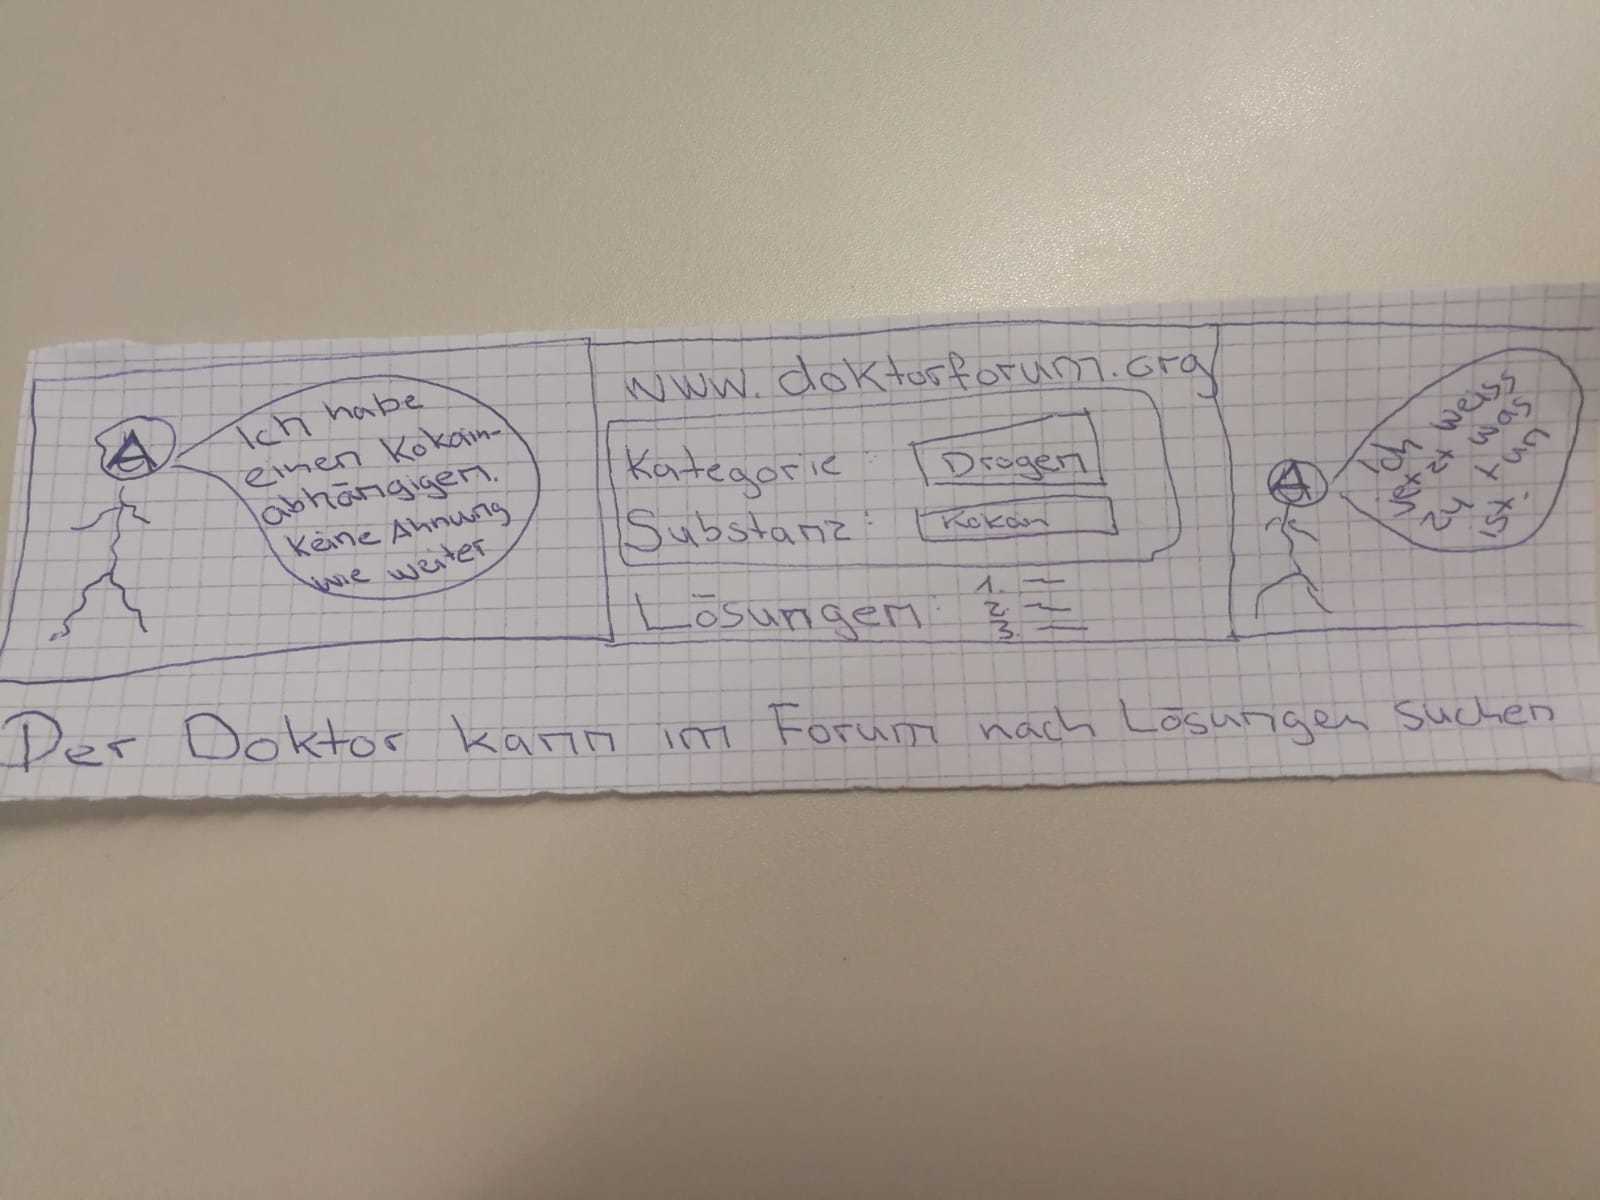 Ich habe
einen Kokain-
abhängigen.
Keine Ahnung
wie weiter
www.doktorforum.org
Kategorie: Drogen
Substanz: Kokain
Lösungen: 1.
2.
3.
ich weiss
jextzx was
zu x
isx.
Der Doktor kann im Forum nach Lösungen suchen